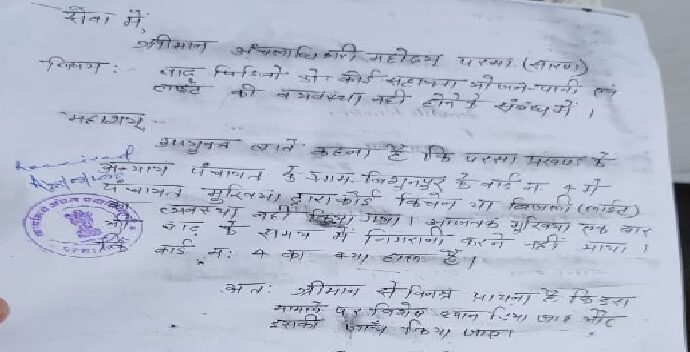 सेवा में,
श्रीमान अंचलाधिकारी महोदय परसा (सारण)
विषय: बाढ़ पिड़ितों को कोई सहायता भोजन-पानी एवं
लाईट की व्यवस्था नहीं होने के संबंध में।
महाशय,
उपयुक्त बातें कहना है कि परसा प्रखण्ड के
पंचायत के ग्राम बिशुनपुर के वार्ड न 4 में
Received
पंचायत मुखिया द्वारा कोई किचन या बिजली (लाईट)
का व्यवस्था नहीं किया गया। आजतक मुखिया एक बार
भी बाढ़ के समय में निगरानी करने नहीं आया।
कि वार्ड न: 4 का क्या हाल है।
अत: श्रीमान से विनम्र प्रार्थना है कि इस
मामले पर विशेष ध्यान दिया जाय और
इसकी जाँच किया जाए।